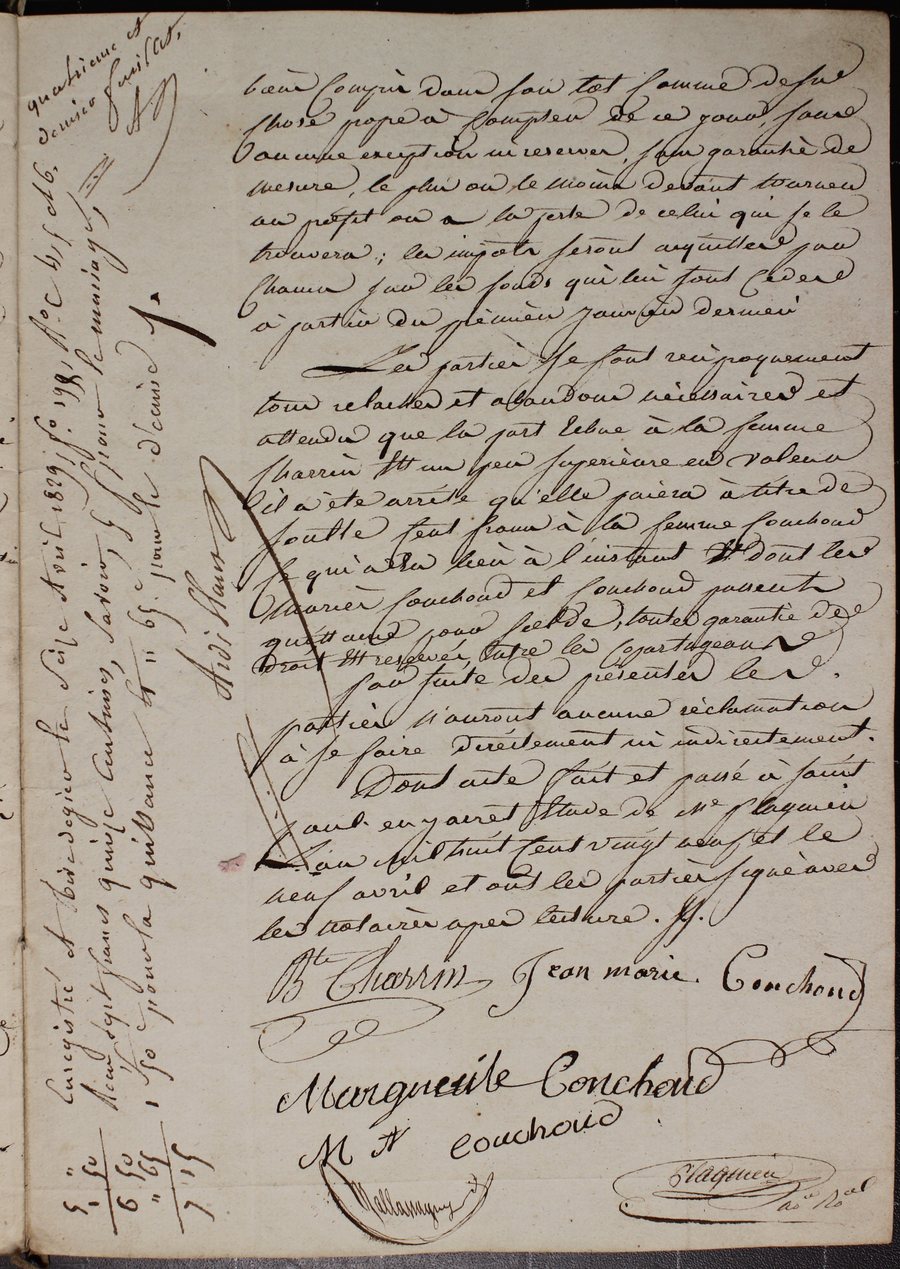 quatrième et
dernier feuillet.
bien compris dans son lot comme desus
chose propre à compter de ce jour, sans
aucune exception ni reserve, sans garantie de
mesure, le plus ou le moins devant tourner
au profit ou a la perte de celui qui se le
trouvera ; les impots seront acquittés par
chacun sur les fonds qui lui sont cedés
à partir du premier janvier dernier
Les parties se font reciproquement
tous relachés et abandons nécessaires et
attendu que la part echue à la femme
Charrin est un peu superieure en valeur
il a été arrété qu'elle paiera à titre de
soulte cent francs à la femme Couchoud
ce qui a eu lieu à l'instant dont les
mariés Couchoud et Couchoud passent
quittance pour solde, toutes garantie de
droit est reservée entre les copartageants
par suite des présentes les
parties n'auront aucune réclamation
à se faire directement ni indirectement.
Dont acte fait et passé à saint
paul en jarret Etude de Me Flaqmein
L'an mil huit cent vingt neuf et le
neuf avril et ont les parties signé avec
les notaires apres lecture.
Bte Charrin Jean marie Couchoud
Marguerite Couchoud
M A Couchoud
Enregistré à Rive de gier le seize Avril 1829, fo 198, Ro C 4, 5 et 6.
Reçu sept francs quinze centimes, savoir, 5 f pour le
1 f 50 c pour la quittance et " 65 c pour le décime
5 "
1 50
6 50
" 65
7 15